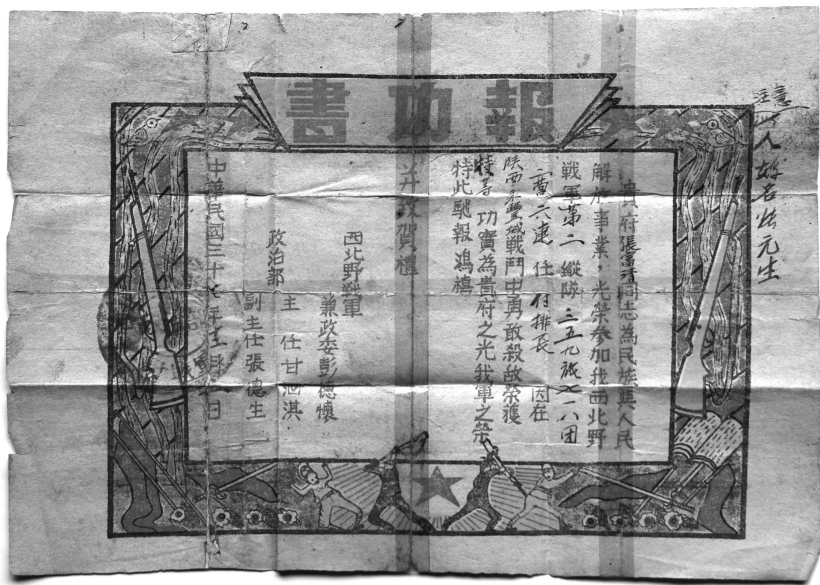 報功書
貴府張富清同志為民族與人民
解放事業,光榮參加我西北野
戰軍第二縱隊三五九旅七一八团
二营六連任付排長因在
陝西永豐城戰鬥中勇敢殺敌榮獲
特等功實為貴府之光我軍之榮
特此馳報鴻禧
并致賀禮
西北野戰軍
兼政委彭德懷
政治部
主任甘泗淇
副主任張德生
中華民國三十七年十二月日
注意